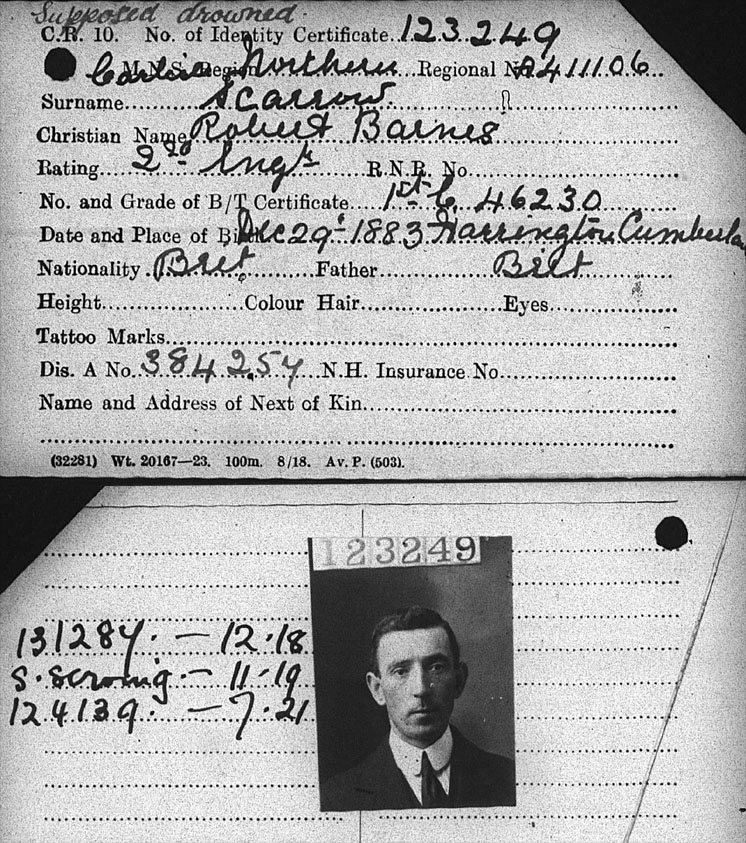 Supposed drowned.
C.R. 10. No. of Identity Certificate 123249
M.N.S. Region Northern Regional No. A411106
Surname Scarrow
Christian Name Robert Barnes
Rating 2nd Engr R.N.R. No.
No. and Grade of B/T Certificate 1st C 46230
Date and Place of Birth Dec 29 1883 Harrington Cumberla
Nationality Brit Father Brit
Height Colour Hair Eyes
Tattoo Marks
Dis. A No. 384257 N.H. Insurance No.
Name and Address of Next of Kin
(32281) Wt. 20167—23. 100m. 8/18. Av. P. (503).
123249
131287. — 12.18
S. — 11.19
124139. — 7.21